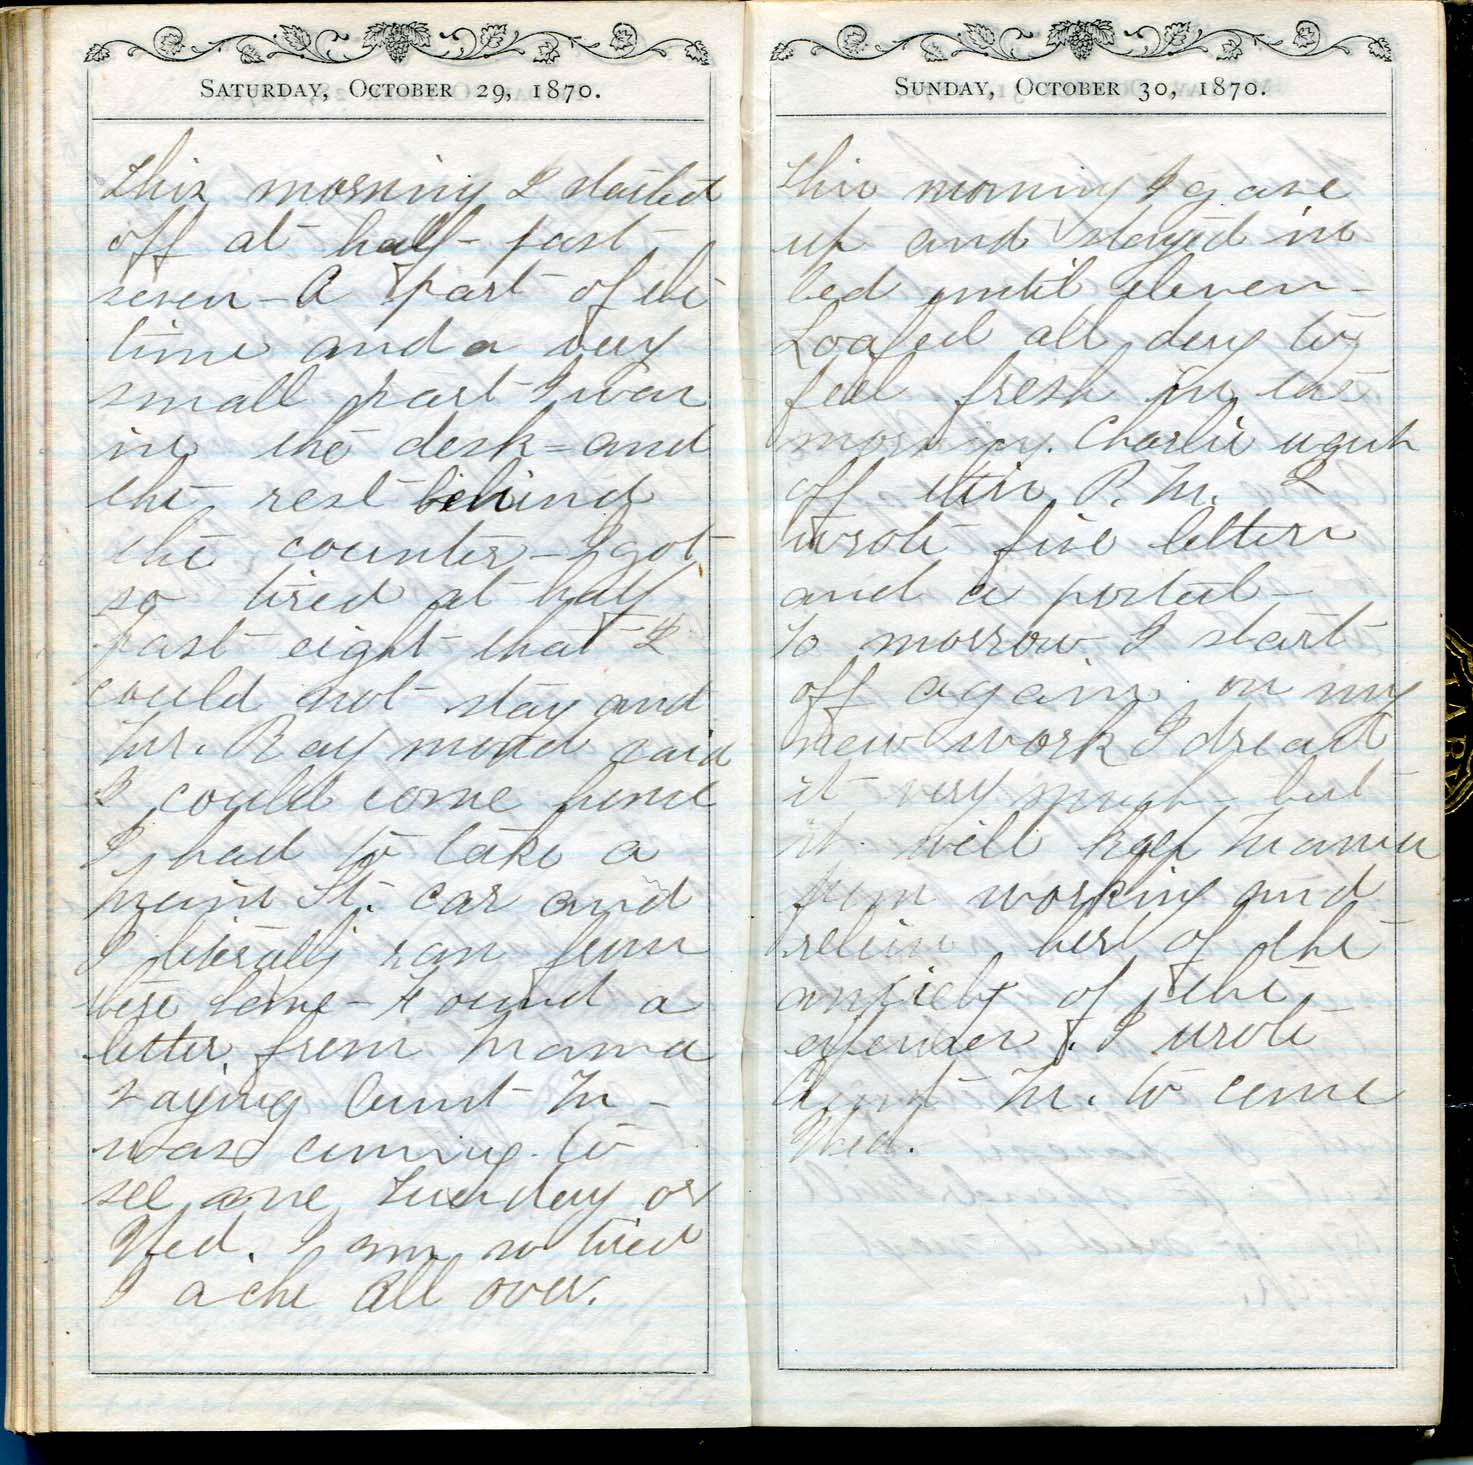 SATURDAY, OCTOBER 29, 1870.
This morning I started
off at half-past-
seven - A part of the
time and a very
small part I was
in the desk - and
the rest behind
the counter - I got
so tired at half
past eight that I
could not stay and
Mr. Raymond said
I could come home
I had to take a
Main St. car and
I literally ran from
here home - Found a
letter from Mama
saying Aunt M -
was coming to
see me Tuesday or
Wed. I am so tired
I ache all over.
SUNDAY, OCTOBER 30, 1870.
This morning I gave
up and stayed in
bed until eleven -
Loafed all day to
feel fresh in the
morning. Charlie went
off this P.M. I
wrote five letters
and a postal -
To morrow I start
off again on my
new work I dread
it very much but
it will keep Mama
from working and
relieve her of the
anxiety of the
. I wrote
Aunt M. to come
Wed.